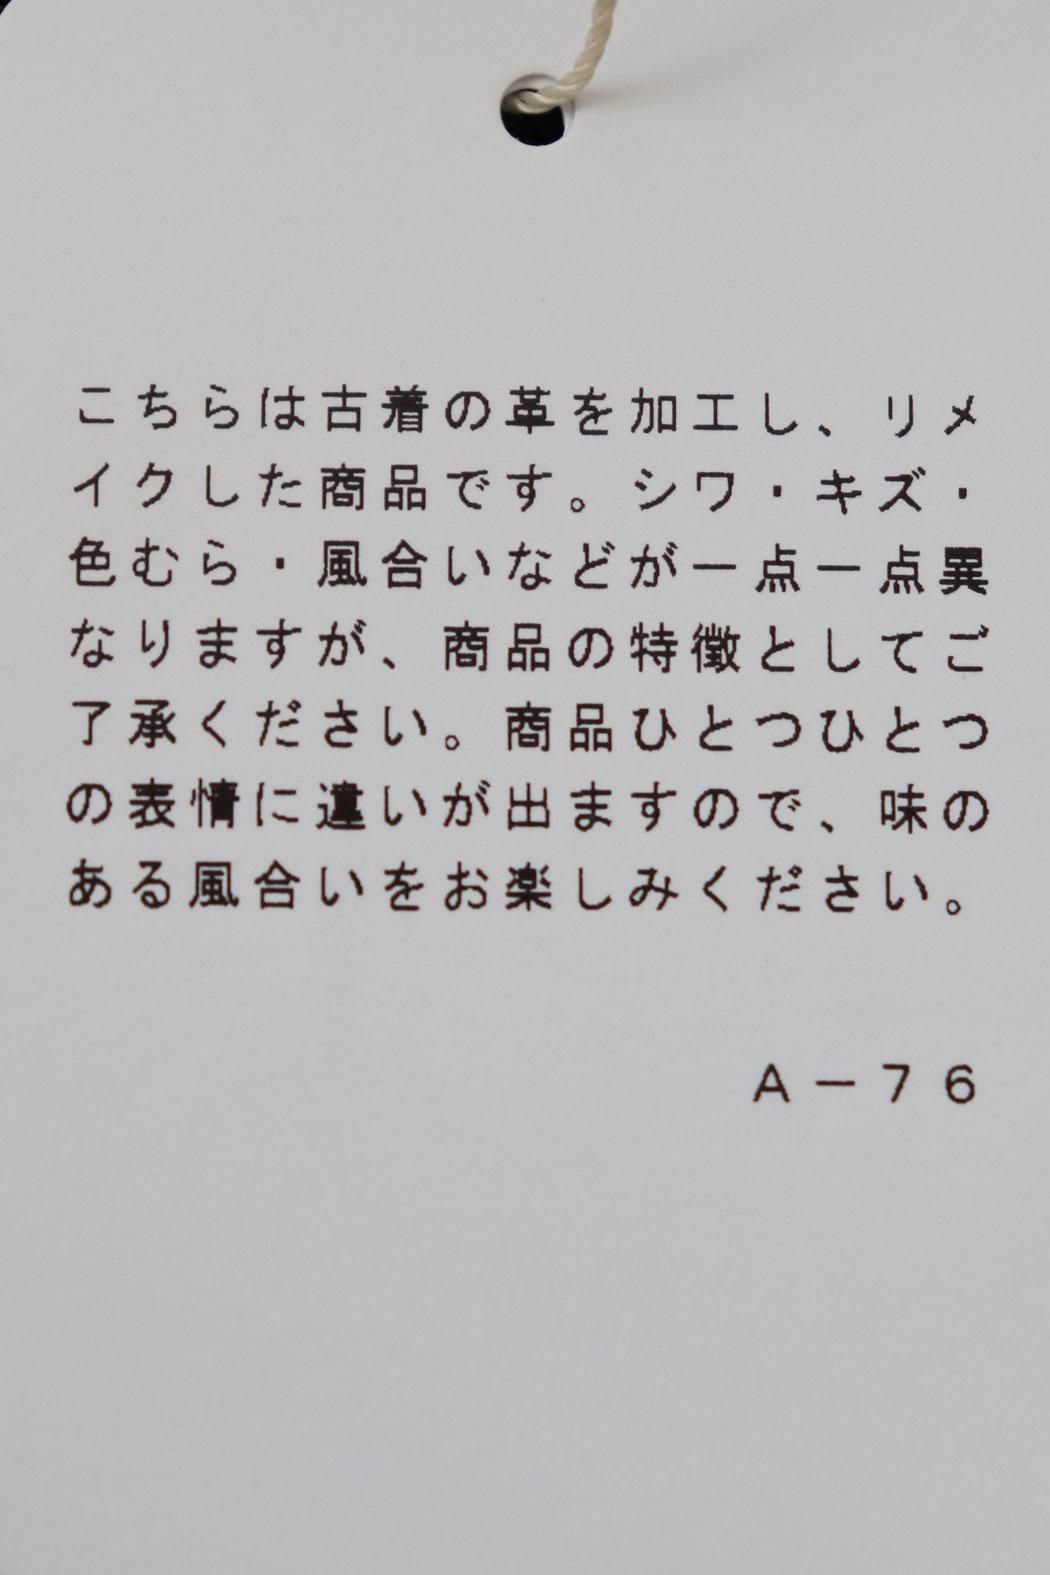 こちらは古着の革を加工し、リメ
イクした商品です。シワ・キズ・
色むら・風合いなどが一点一点異
なりますが、商品の特徴としてご
了承ください。商品ひとつひとつ
の表情に違いが出ますので、味の
ある風合いをお楽しみください。
A－76